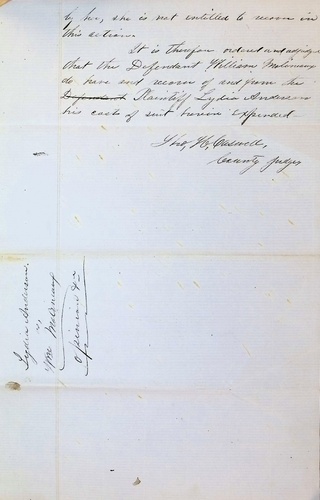 by her, she is not entitled to recover in
this action.
It is therefore ordered and adjudged
that the Defendant William Molineaux
do have and recover of and from the
Defendant Plaintiff Lydia Anderson
his costs of suit herein expended
Thos, H, Caswell,
County Judge
Lydia Anderson.
v.
Wm Molineaux
Opinion &c